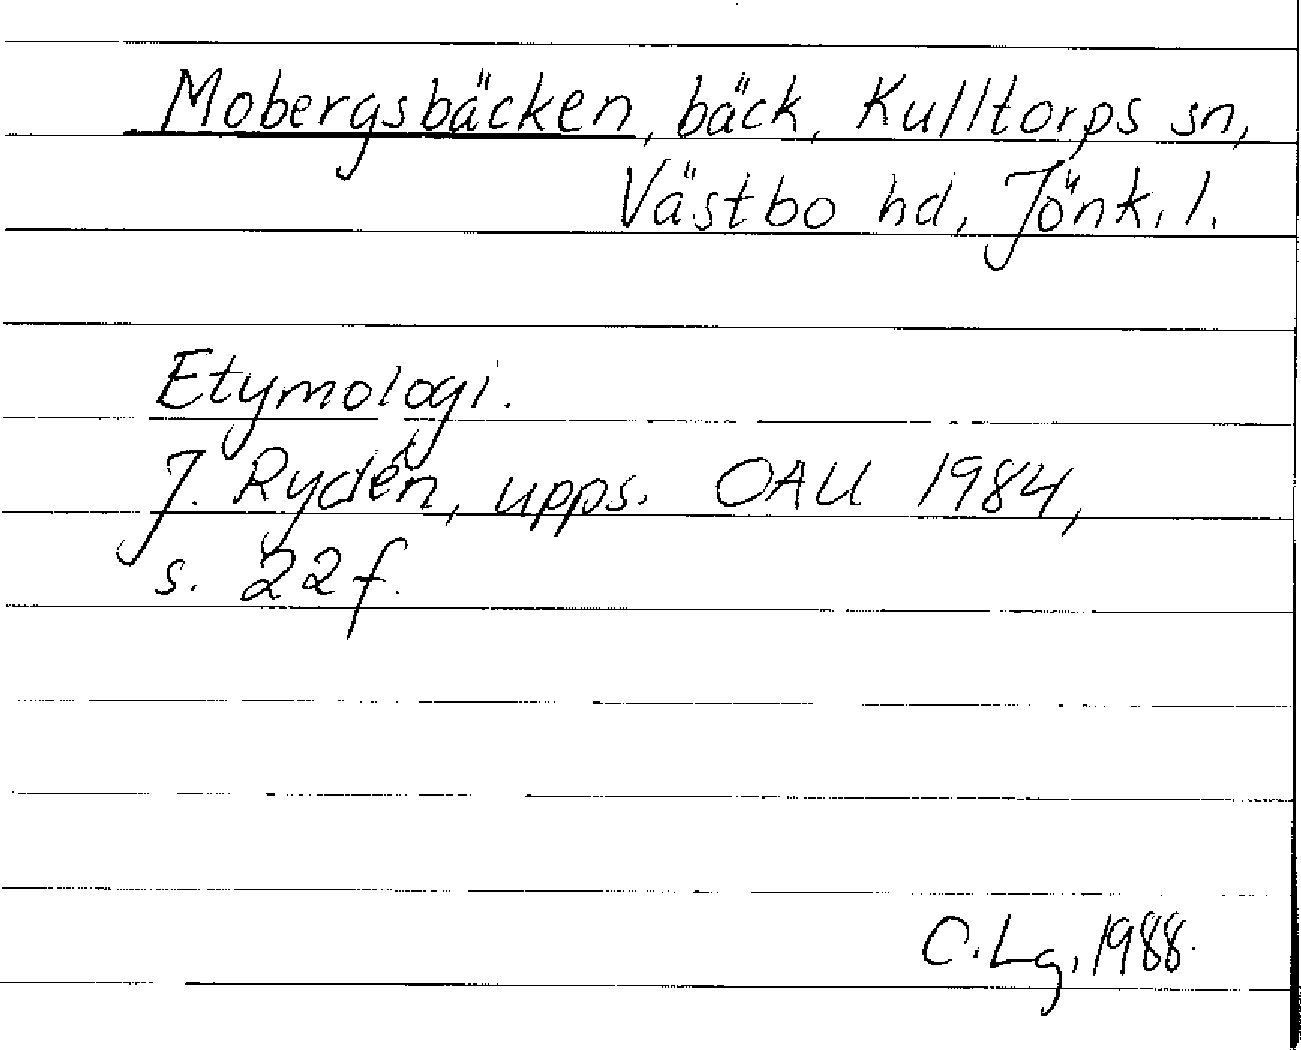 Mobergsbäcken, bäck, Kulltorps sn,
Västbo hd, Jönk. l.
Etymologi.
J. Rydén, upps. OAU 1984,
s. 22 f.
C. Lg, 1988.